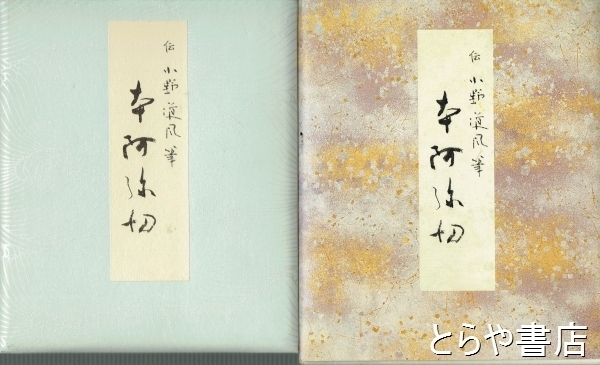 伝 小野道風筆
本阿弥切
伝 小野道風筆
本阿弥切
とらや書店